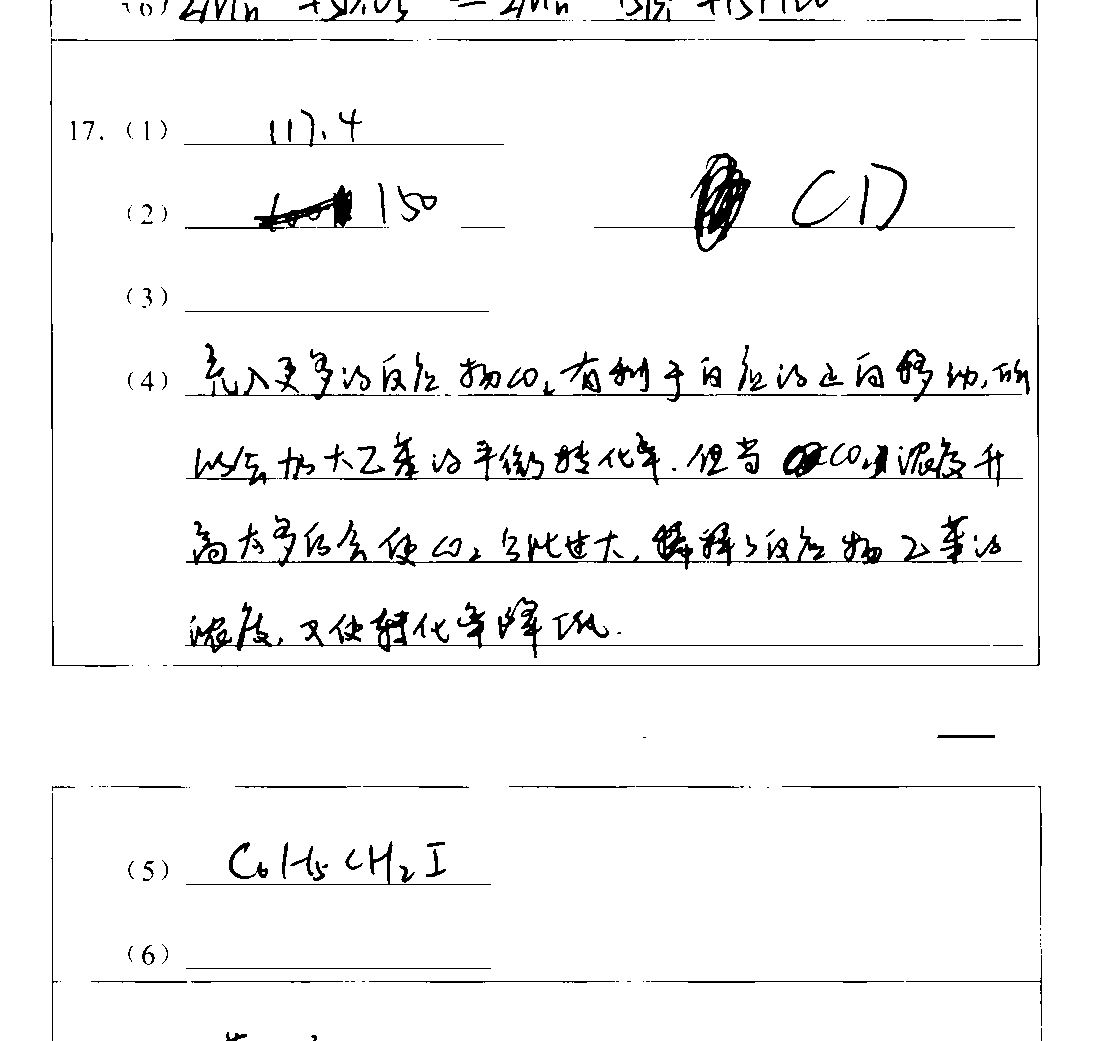 17. (1) 117.4
(2) 150 CD
(3)
(4) 充入更多的反应物CO₂有利于反应的正向移动,所
以会加大乙苯的平衡转化率.但当CO₂浓度升
高太多后会使CO₂占比过大,稀释了反应物乙苯的
浓度,又使转化率降低.
(5) C₆H₅CH₂I
(6)